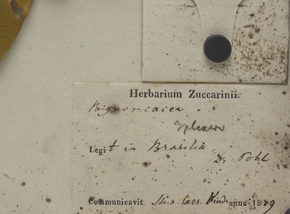 Herbarium Zuccarinii.
Bignoniacea
Legit in Brasilia
Dr Pohl
Communicavit Mus. Caes. Vind. anno 1839